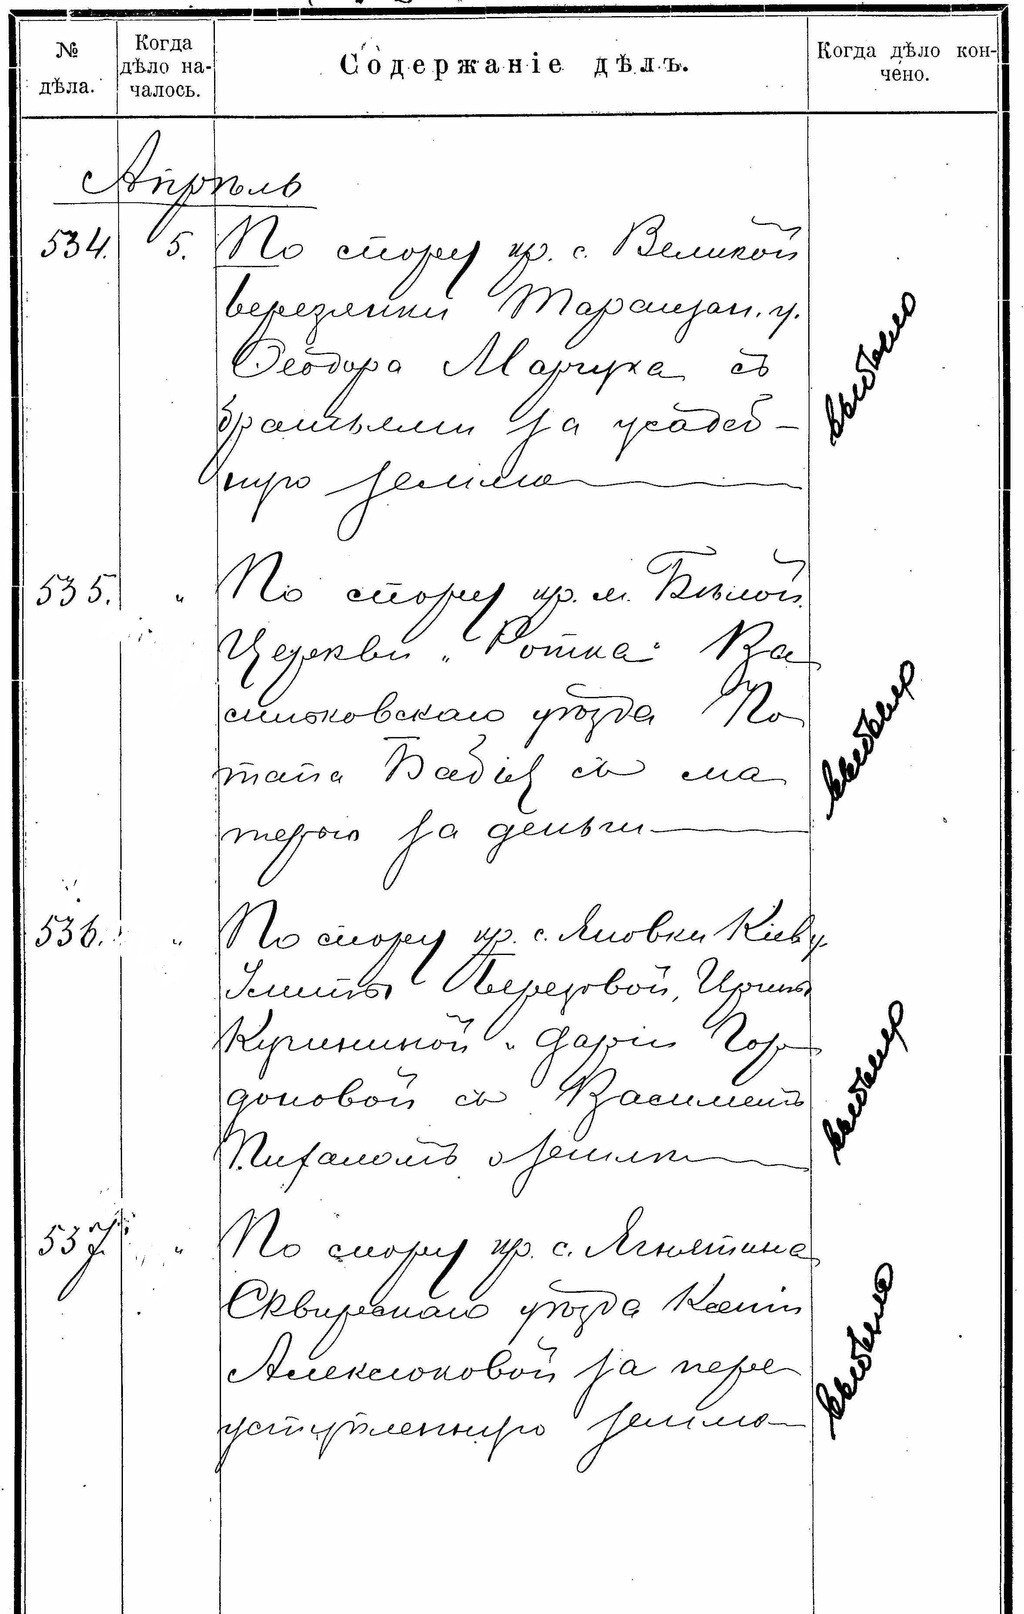 № дѣла.
Когда дѣло на-
чалось.
Содержаніе дѣлъ.
Когда дѣло кон-
чено.
Апрѣль
534. 5. По спору кр. с. Великой
Березянки Таращан. у.
Ѳеодора Марчука съ
братьями за усадеб-
ную землю
535. " По спору кр. м. Бѣлой
Церкви "Ротка" Ва
сильковскаго уѣзда По
тапа Бабій съ ма
терью за деньги
536. " По спору кр. с. Яновки Кіев у.
Улиты Березовой, Ирины
Кучининой и Даріи Гор
доновой съ Василіемъ
Пихаломъ о землѣ
537. " По спору кр. с. Ягнятина
Сквирскаго уѣзда Ксеніи
Алексюковой за пере
уступленную землю